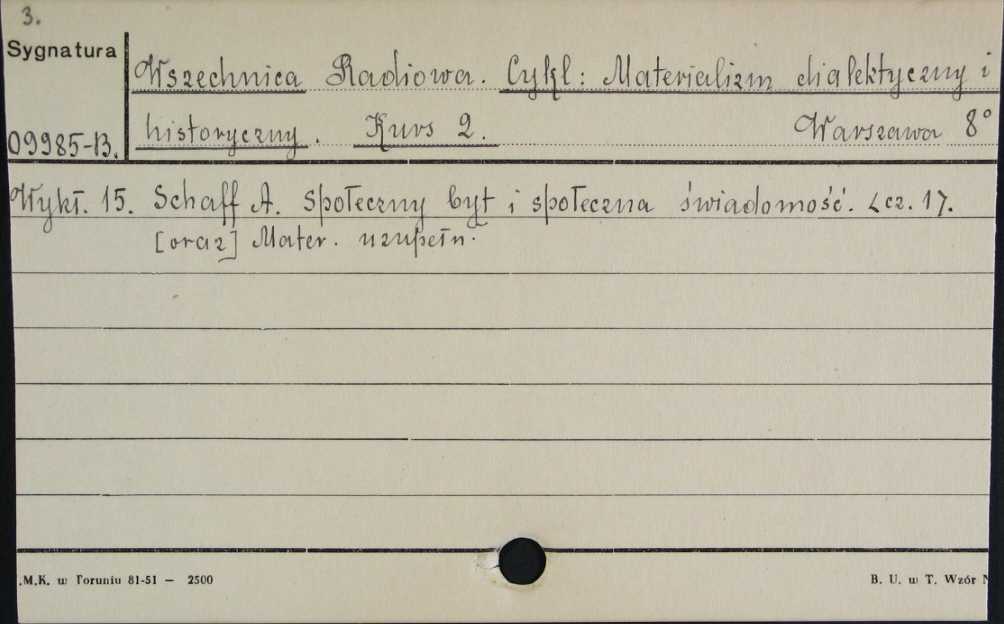 3.
Sygnatura
Wszechnica Radiowa. Cykl: Materializm dialektyczny i
historyczny. Kurs 2. Warszawa 8°
09985-B.
Wykł. 15. Schaff A. Społeczny byt i społeczna świadomość. cz. 17.
[oraz] Mater. uzupełn.
.M.K. w Toruniu 81-51 — 2500
B. U. w T. Wzór